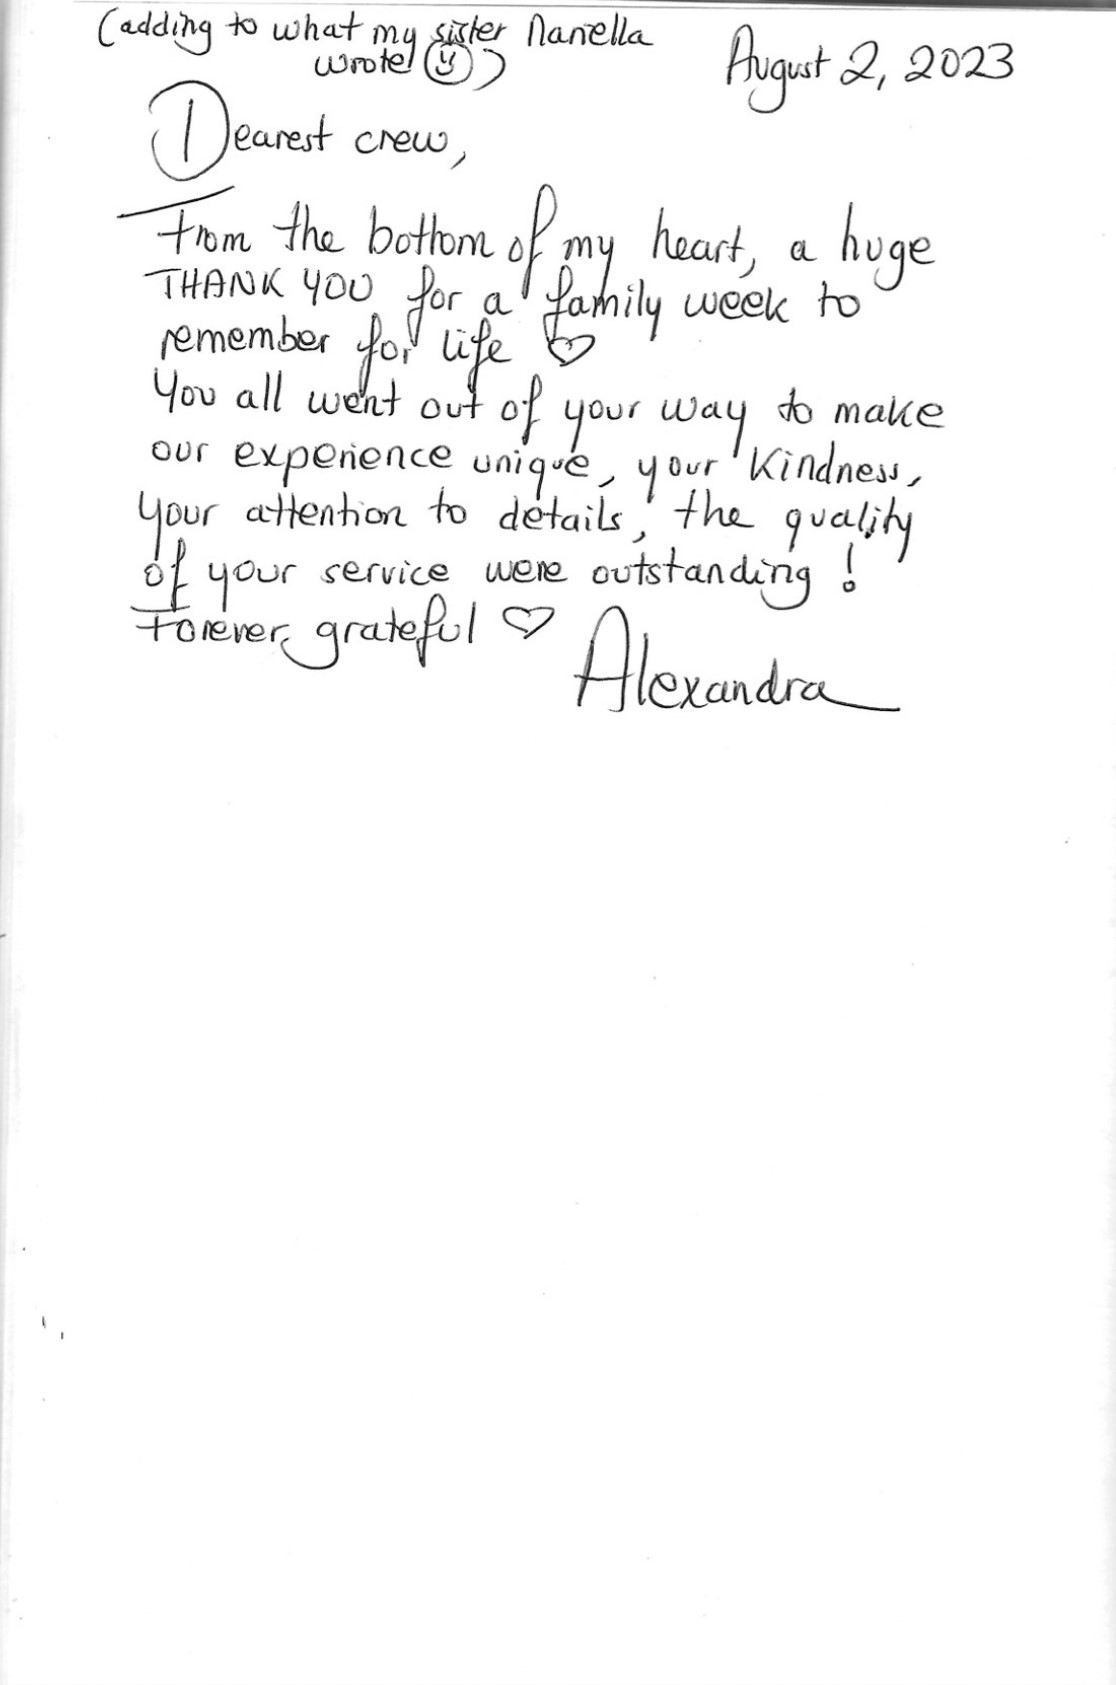 (adding to what my sister Mariella
wrote! ☺)
August 2, 2023
Dearest crew,
From the bottom of my heart, a huge
THANK YOU for a family week to
remember for life ♡
You all went out of your way to make
our experience unique, your kindness,
your attention to details, the quality
of your service were outstanding!
Forever grateful ♡
Alexandra